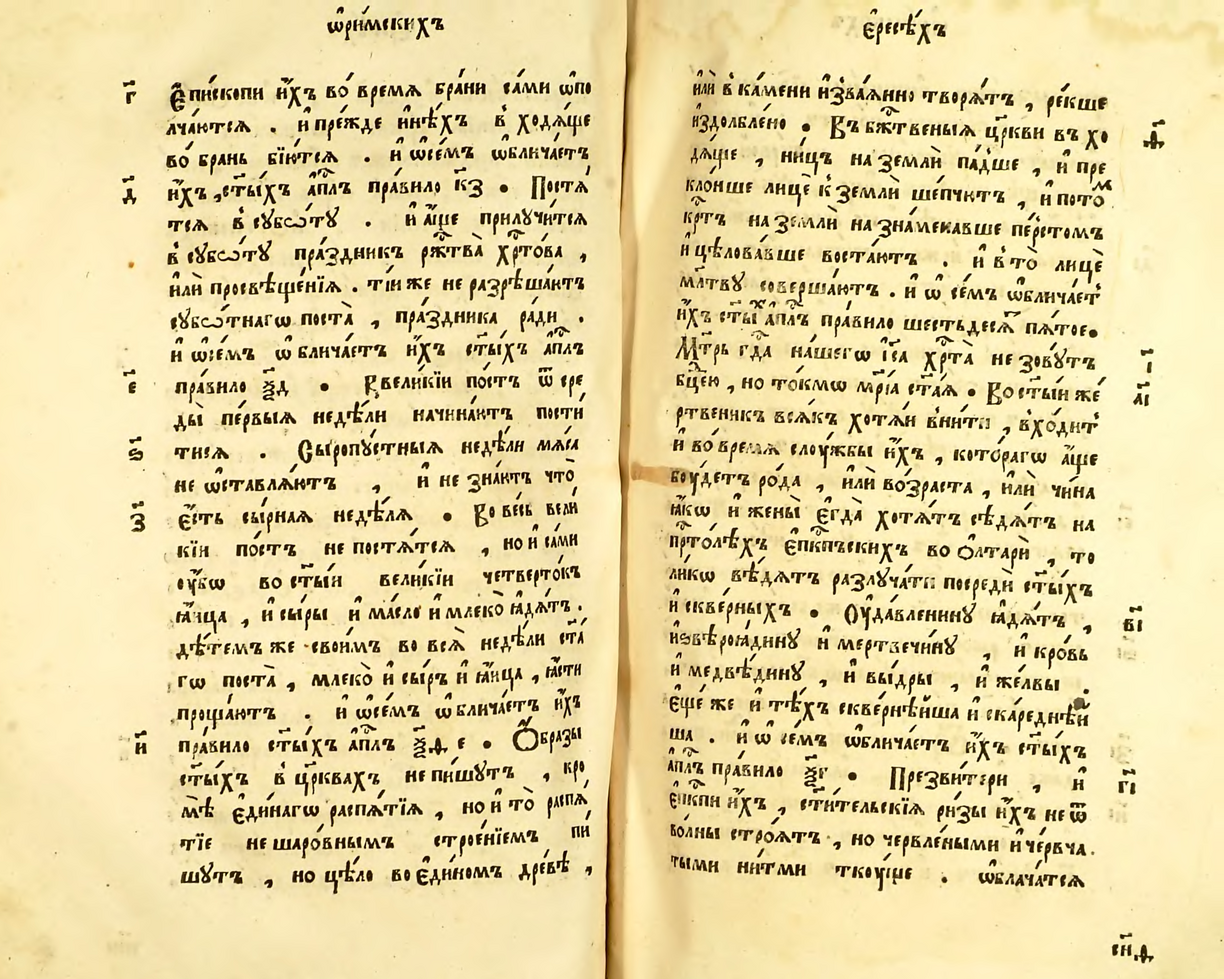 ѡ҆ри́мскихъ
г҃ Є҆пи́скопи и҆́хъ во́ время бра́ни са́ми ѡ҆по
лча́ются . и҆ пре́жде и҆нѣ́хъ в̾ ходя́ще
во́ бра́нь бїю́тся . и҆ ѡ҆се́мъ ѡ҆блича́етъ
д҃ и҆́хъ ст҃ы́хъ а҆пⷭ҇лъ пра́вило к҃з • Постя́
тся в̾ сꙋбѡ́тꙋ . и҆ а҆́ще прилꙋчи́тся
в̾ сꙋбѡ́тꙋ пра́здникъ ржⷭ҇тва̀ хрⷭ҇то́ва ,
и҆лѝ просвѣще́нїя . ті́и же не разрѣша́ютъ
сꙋбѡ́тнагѡ поста̀ , пра́здника ра́ди .
и҆ ѡ҆се́мъ ѡ҆бличае́тъ и҆́хъ ст҃ы́хъ а҆пⷭ҇лъ
е҃ пра́вило ѯ҃д • Ввели́кїи по́стъ ѿ сре
ды̀ пе́рвыя неде́ли начина́ютъ пости́
ѕ҃ тися . Сы́ропꙋ́стныя неде́ли мя́са
не ѡ҆ставля́ютъ , и҆ не зна́ютъ что̀
з҃ є҆́сть сы́рная неде́ля • Во ве́сь вели́
кїи по́стъ не постя́тся , но и҆ са́ми
оу҆́бѡ во ст҃ы́и вели́кїи четверто́къ
ꙗ҆́ица , и҆ сы́ры и҆ ма́сло и҆ млеко̀ ꙗ҆дя́тъ .
дѣ́темъ же свои́мъ во вся̀ неде́ли ст҃а́
гѡ поста̀ , млеко̀ и҆ сы́ръ и҆ ꙗ҆́ица , ꙗ҆́сти
проща́ютъ . и҆ ѡ҆се́мъ ѡ҆бличае́тъ и҆́хъ
и҃ пра́вило ст҃ы́хъ а҆пⷭ҇лъ ѯ҃ѳ е • Ѻ҆́бразы
ст҃ы́хъ в̾ цр҃квахъ не пи́шꙋтъ , кро
мѣ̀ є҆ди́нагѡ распя́тїя , но и҆ то̀ распя́
тїе не шаро́внымъ строе́нїемъ пи́
шꙋтъ , но цѣ́ло во є҆ди́номъ дре́вѣ ,
є҆́ресѣхъ
и҆лѝ в̾ ка́мени и҆зва́янно творя́тъ , ре́кше
и҆здо́лблено • Въ бжⷭ҇твеныя цр҃кви въ хо ѳ҃
дя́ще , ни́цъ на землѝ па́дше , и҆ пре
кло́нше лицѐ к̾ землѝ ше́пчютъ , и҆ пото́м
крⷭ҇тъ на землѝ назна́менавше пе́рстомъ
и҆ цѣлова́вше востаю́тъ . и҆ в̾ то̀ лицѐ
мл҃твꙋ соверша́ютъ . и҆ ѡ҆ се́мъ ѡ҆блича́ет
и҆́хъ ст҃ы́х а҆пⷭ҇лъ пра́вило шестьдеся́т пя́тое•
Мт҃рь гдⷭ҇а на́шегѡ і҆с҃а хрⷭ҇та̀ не зовꙋ́тъ і҃
бц҃ею , но то́кмѡ мр҃їа ст҃а́я • Во ст҃ы́и же́ а҃і
ртвеникъ вся́къ хотя́и вни́ти , в̾хо́дит
и҆ во́ время слоу́жбы и҆́хъ , кото́рагѡ а҆́ще
боу́детъ ро́да , и҆лѝ во́зраста , и҆лѝ чи́на
ꙗ҆́кѡ и҆ жены̀ є҆гда̀ хотя́тъ сѣдя́тъ на
прⷭ҇то́лѣхъ є҆пкⷭ҇пъскихъ во ѻ҆лтарѝ , то
ли́кѡ вѣ́дятъ разлꙋча́ти посредѝ ст҃ы́хъ
и҆ скве́рныхъ • Оу҆да́вленинꙋ ꙗ҆дя́тъ , в҃і
и҆ ѕвѣроꙗ́динꙋ и҆ мертвечи́нꙋ , и҆ кро́вь
и҆ медвѣ́динꙋ , и҆ вы́дры , и҆ же́лвы .
є҆ще́ же и҆ тѣ́хъ скве́рнѣйша и҆ скаре́днѣй
ша . и҆ ѡ҆ се́мъ ѡ҆блича́етъ и҆́хъ ст҃ы́хъ
а҆пⷭ҇лъ пра́вило ѯ҃г • Презви́тери , и҆ г҃і
є҆пкⷭ҇пи и҆́хъ , ст҃и́тельскїя ри́зы и҆́хъ не ѿ
во́лны строя́тъ , но червле́ными и҆ че́рвча
тыми ни́тми ткоу́ще . ѡ҆блача́тся
сн҃ѳ